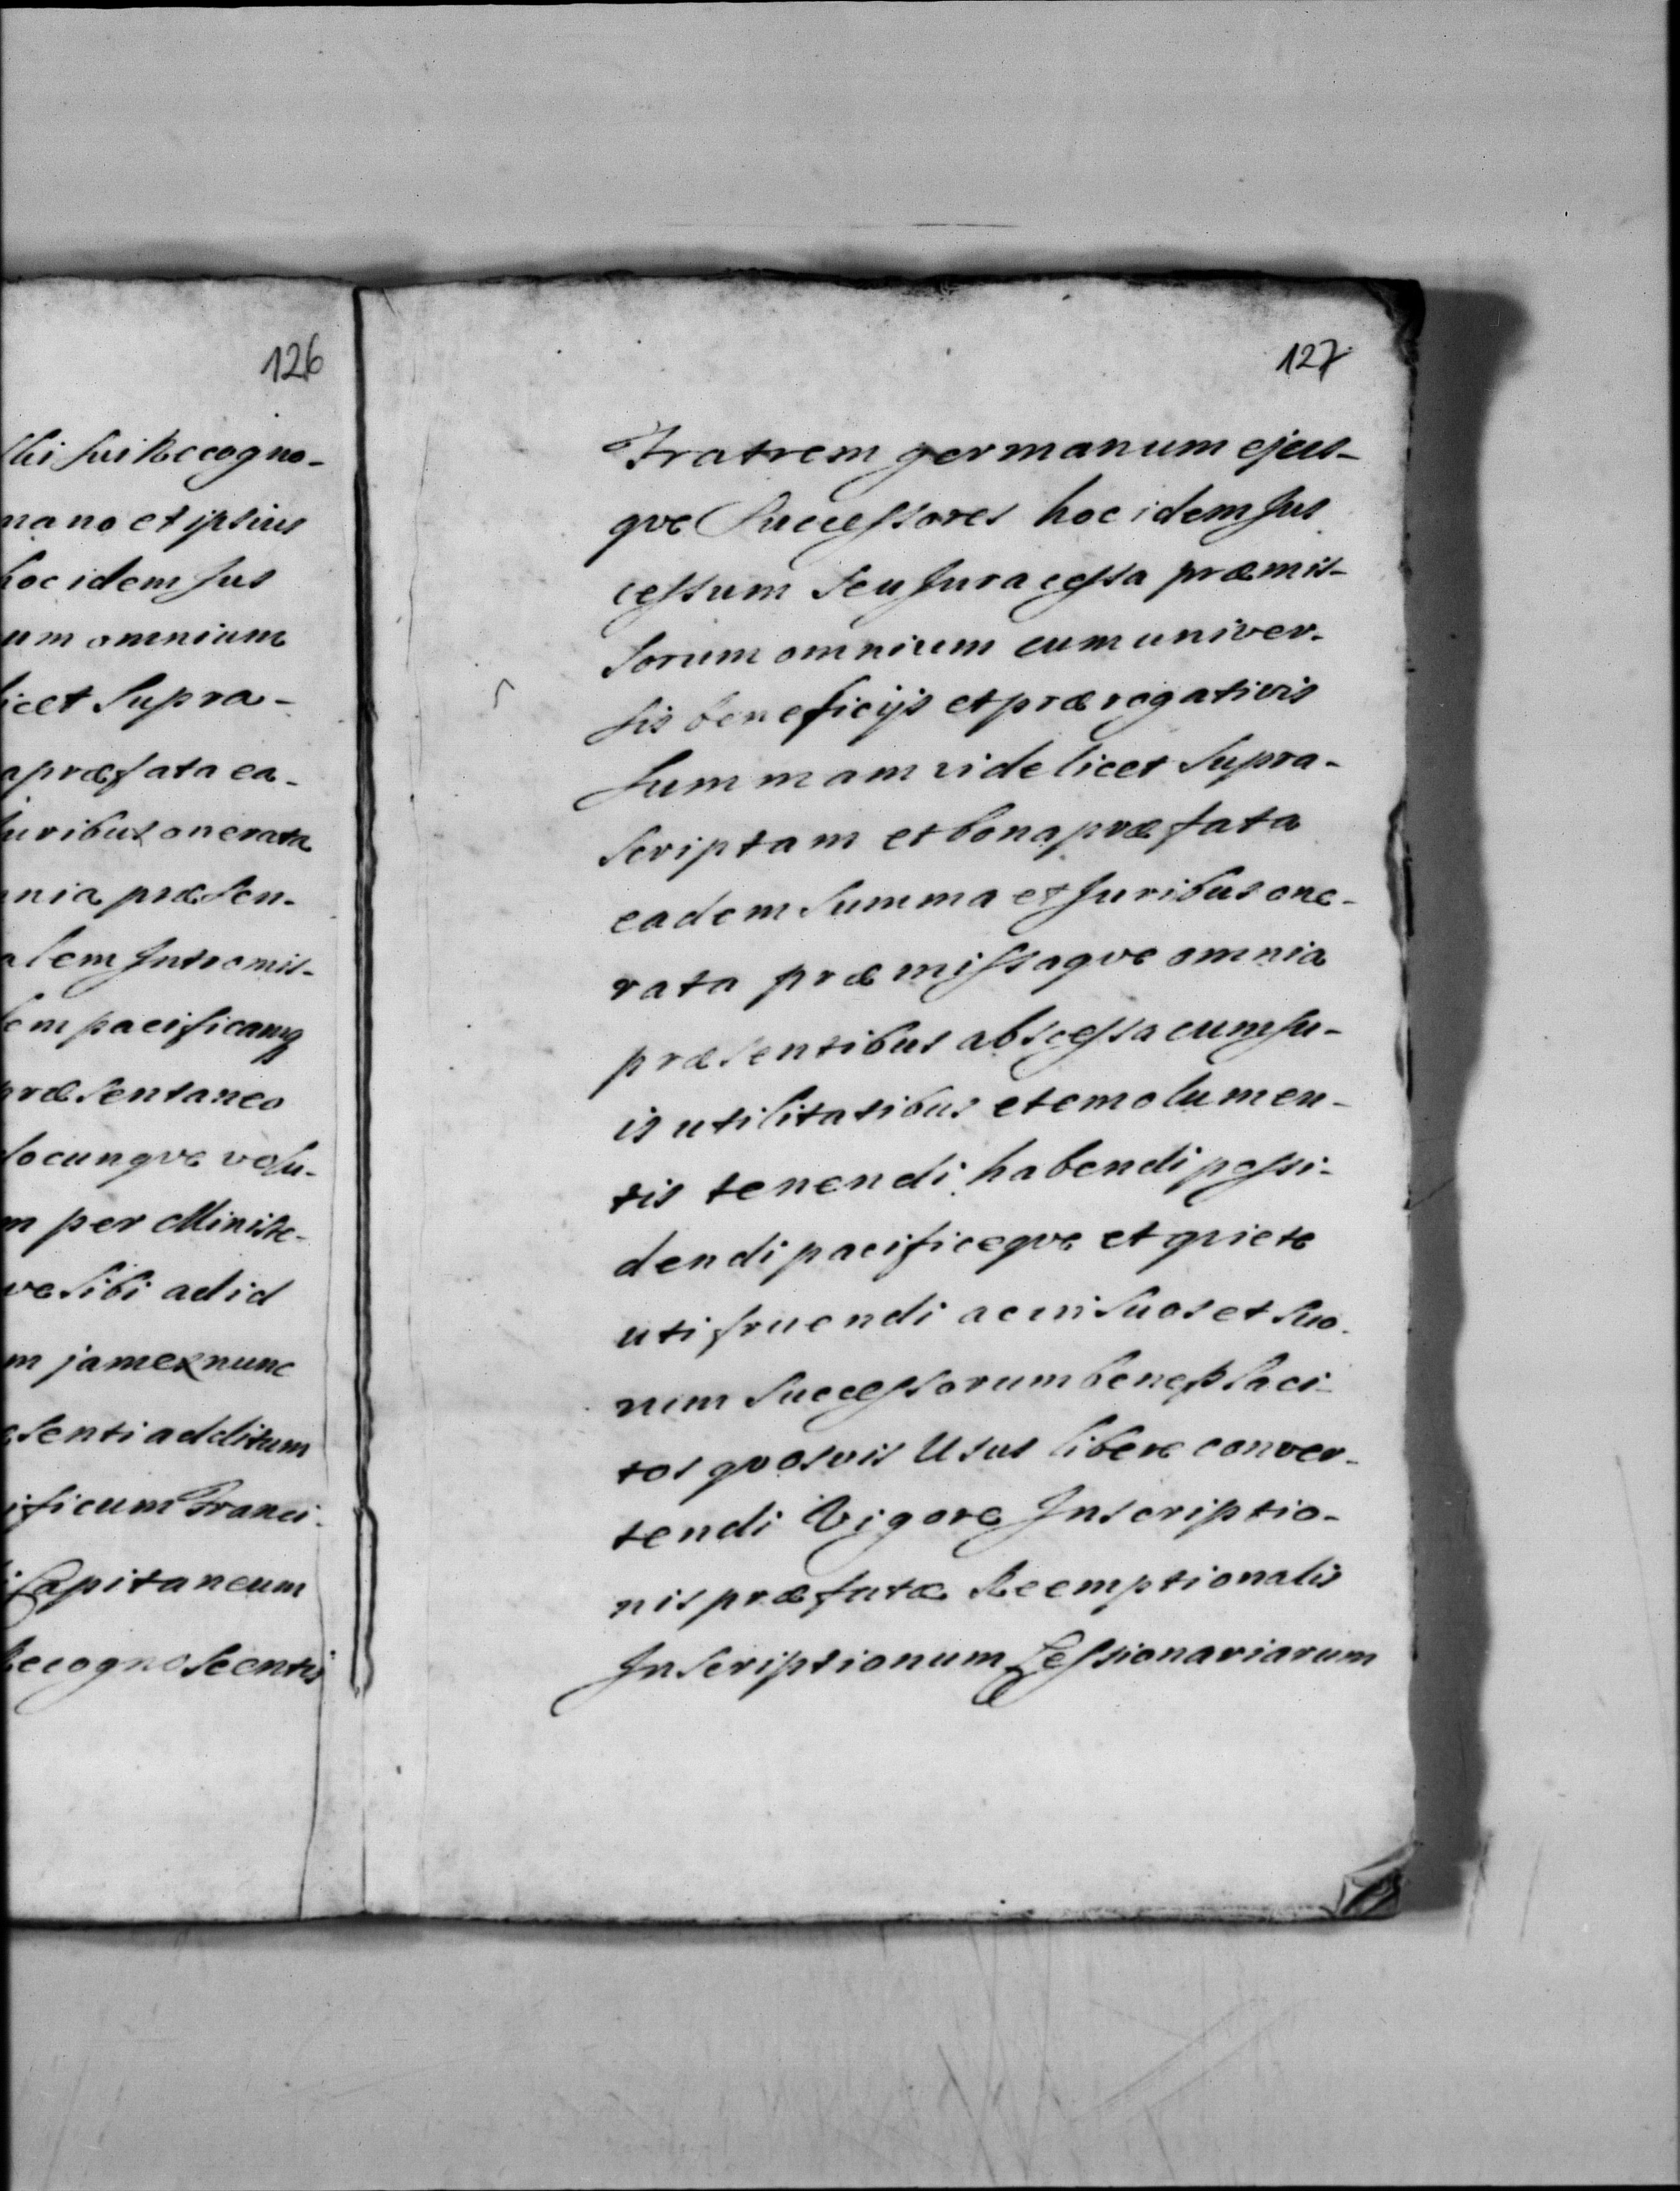 126
sui Recogno-
mano et ipsius
hoc idem Jus
um omnium
licet Supra-
præfata ea-
Juribus onerata
nia præsen-
alem Intromis-
em pacificamq
præsentaneo
locunqve volu-
m per Ministe-
ve sibi ad id
m jam ex nunc
senti additum
ificum Franci-
Capitaneum
Recognoscentis
127
Fratrem germanum ejus-
qve Successores hoc idem Jus
cessum seu Jura cessa præmis-
sorum omnium cum univer-
sis beneficijs et prærogativis
summam videlicet supra-
scriptam et bona præfata
eadem summa et Juribus one-
rata præmissaqve omnia
præsentibus abscessa cum su-
is utilitatibus et emolumen-
tis tenendi habendi possi-
dendi pacificeqve et qviete
utifruendi ac in suos et suo-
rum successorum beneplaci-
tos qvosvis Usus libere conver-
tendi Vigore Inscriptio-
nis præfatæ Reemptionalis
Inscriptionum Cessionariarum